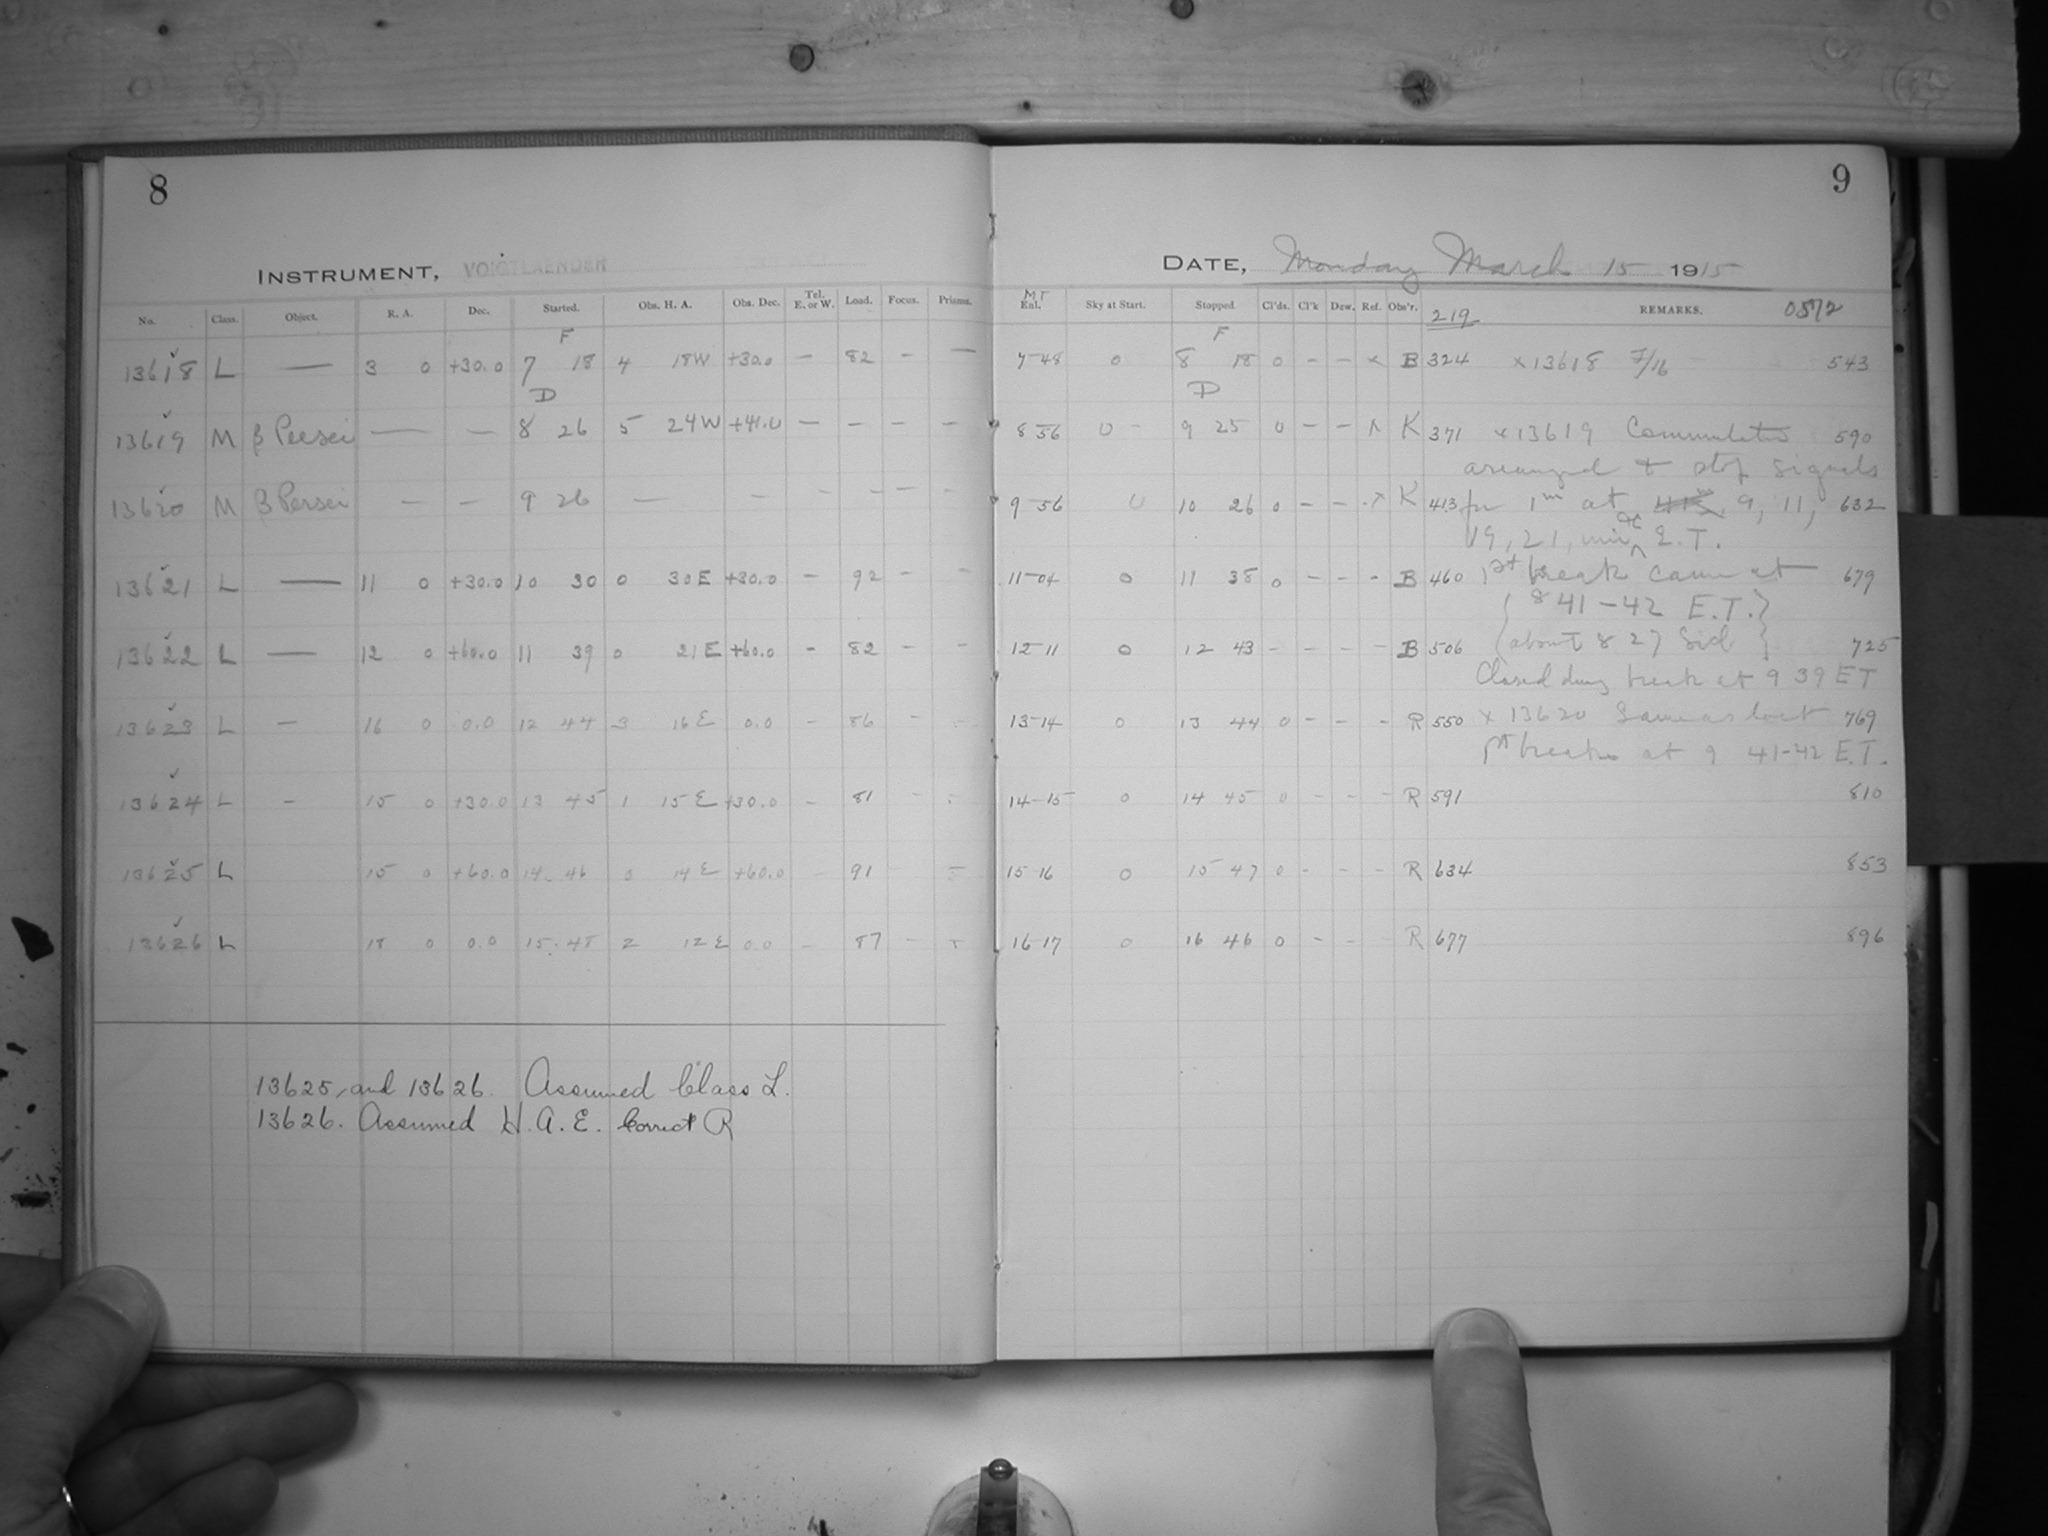 8
INSTRUMENT, VOIGTLAENDER
No. Class. Object. R. A. Dec. Started. Obs. H. A. Obs. Dec. Tel. E. or W. Load. Focus. Prisms.
F
13618 L — 3 0 +30.0 7 18 4 18W +30.0 — 82 — —
D
13619 M β Persei — — 8 26 5 24W +41.0 — — — —
13620 M β Persei — — 9 26 — — — — — —
13621 L — 11 0 +30.0 10 30 0 30E +30.0 — 92 — —
13622 L — 12 0 +60.0 11 39 0 21E +60.0 — 82 — —
13623 L — 16 0 0.0 12 44 3 16E 0.0 — 86 — —
13624 L — 15 0 +30.0 13 45 1 15E +30.0 — 81 — —
13625 L 15 0 +60.0 14 46 0 14E +60.0 — 91 —
13626 L 18 0 0.0 15 48 2 12E 0.0 — 87 —
13625, and 13626. Assumed Class L.
13626. Assumed H.A.E. Correct R
9
DATE, Monday March 15 1915
MT
Exl. Sky at Start. Stopped Cl'ds. Cl'k Dew. Ref. Obs'r. 219 REMARKS. 0572
F
7-48 0 8 18 0 — — x B 324 x13618 F/16 543
D
8 56 0 - 9 25 0 — — x K 371 x13619 Commutator 590
arranged + stop signals
9-56 0 10 26 0 — — x K 413 for 1m at 9, 11, 632
19, 21, min E.T.
11-04 0 11 38 0 — — - B 460 1st break came at 679
{ 8 41-42 E.T. }
12-11 0 12 43 - — — - B 506 { about 8 27 Sid } 725
Closed dung break at 9 39 ET
13-14 0 13 44 0 - - - R 550 x 13620 Same as last 769
1st break at 9 41-42 E.T.
14-15 0 14 45 0 - - - R 591 810
15 16 0 15 47 0 - - - R 634 853
16-17 0 16 46 0 - - R 677 896